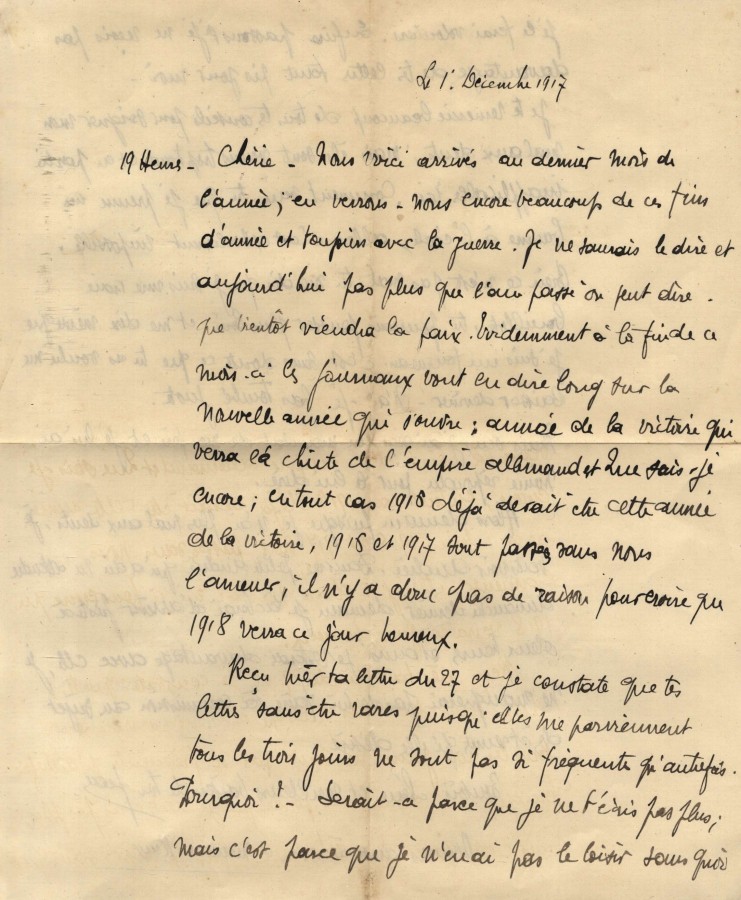 Le 1er Décembre 1917
19 Heures - Chérie - Nous voici arrivés au dernier mois de
l'année ; en verrons-nous encore beaucoup de ces fins
d'année et toujours avec la guerre. Je ne saurais le dire et
aujourd'hui pas plus que l'an passé on peut dire
que bientôt viendra la paix. Evidemment à la fin de ce
mois-ci les journaux vont en dire long sur la
nouvelle année qui s'ouvre ; année de la victoire qui
verra la chute de l'empire allemand et que sais-je
encore ; en tout cas 1915 déjà devait être cette année
de la victoire, 1916 et 1917 sont passés sans nous
l'amener, il n'y a donc pas de raison pour croire que
1918 verra ce jour heureux.
Reçu hier ta lettre du 27 et je constate que tes
lettres sans être rares puisqu'elles me parviennent
tous les trois jours ne sont pas si fréquentes qu'autrefois.
Pourquoi ! - Serait-ce parce que je ne t'écris pas plus ;
mais c'est parce que je n'en ai pas le loisir sans quoi